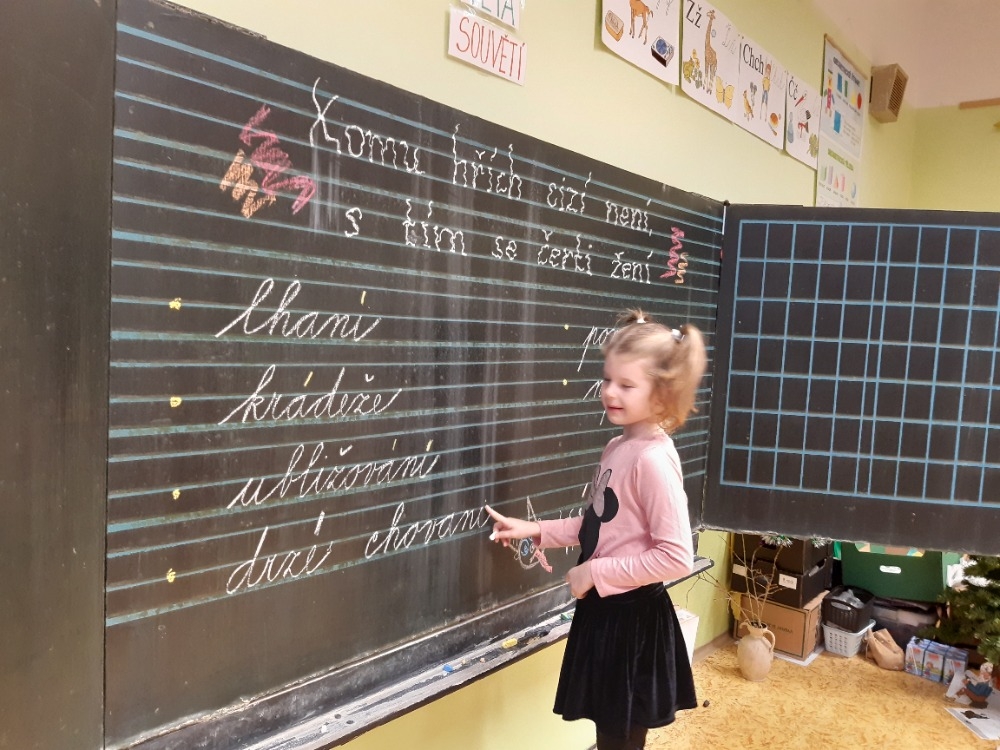 SOUVĚTÍ
Zž
Chch
Čč
Komu hřích cizí není,
s tím se čerti žení
lhaní
krádeže
ubližování
drzé chovaní